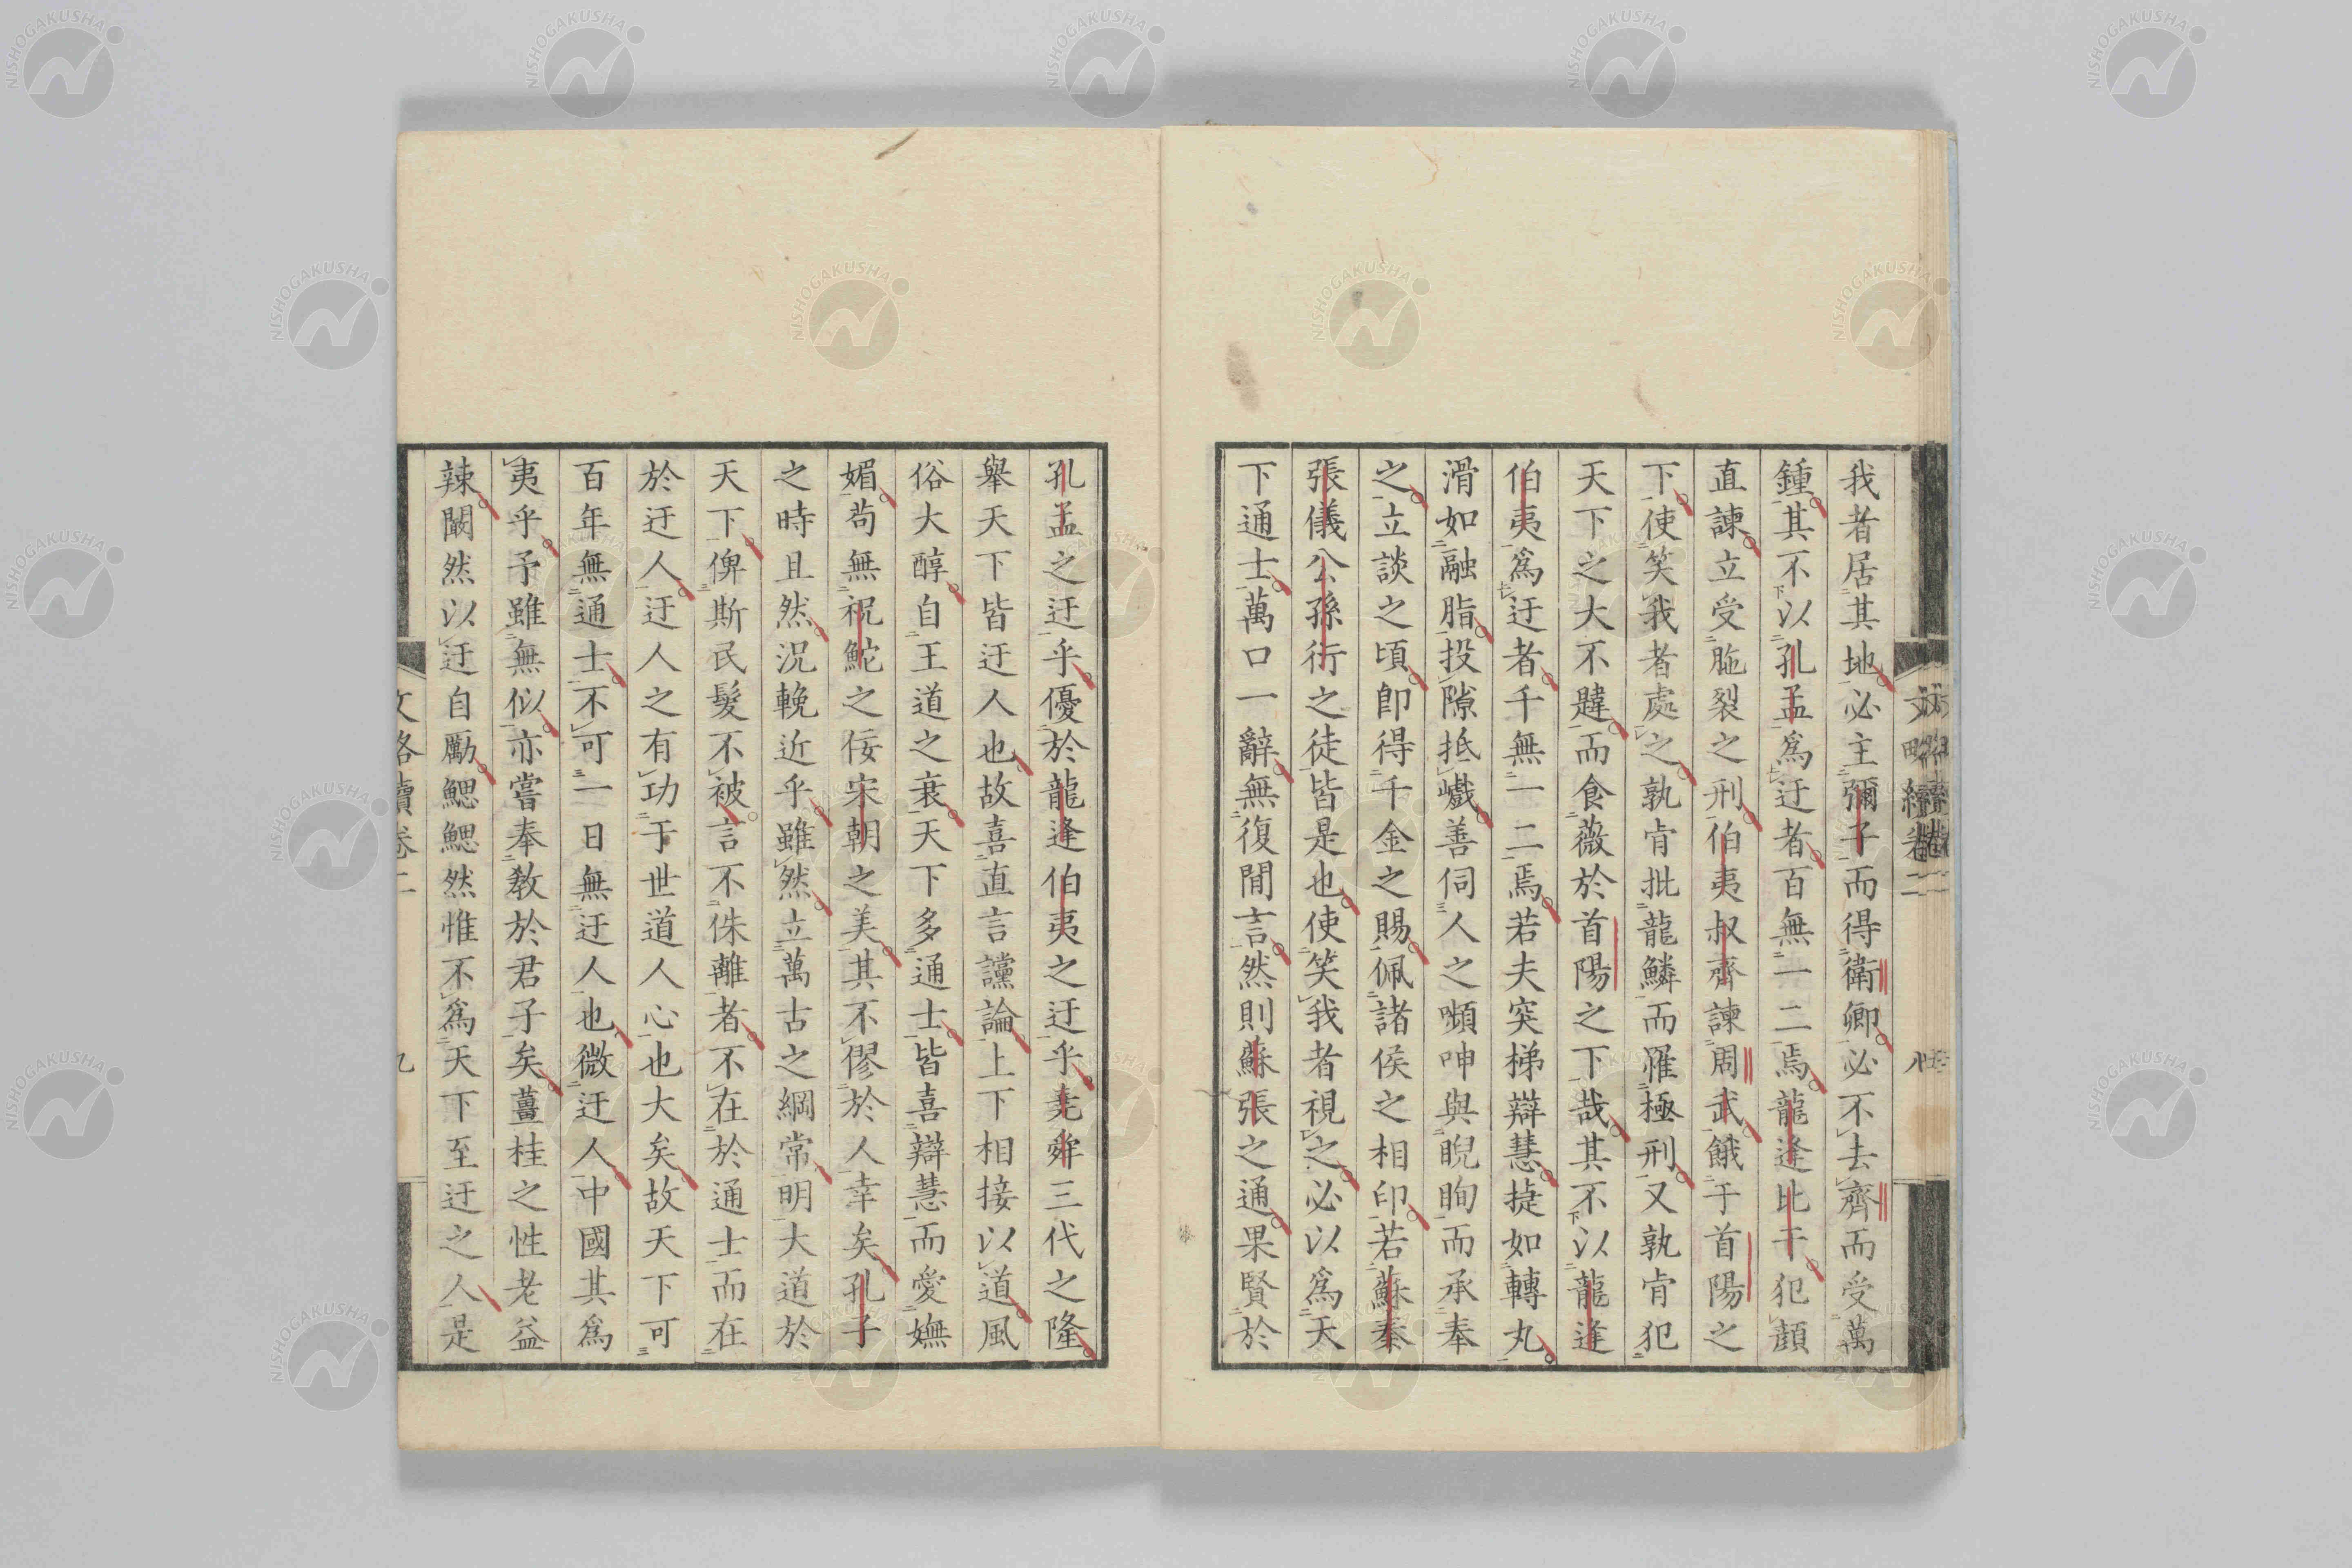 我者居其地必主彌子而得衛卿必不去齊而受萬
鍾其不以孔孟爲迂者百無一二焉龍逢比干犯顔
直諫立受胣裂之刑伯夷叔齊諫周武餓于首陽之
下使笑我者處之孰肯批龍鱗而罹極刑又孰肯犯
天下之大不韙而食薇於首陽之下哉其不以龍逢
伯夷爲迂者千無一二焉若夫突梯辯慧捷如轉丸
滑如融脂投隙抵巇善伺人之嚬呻與睨眴而承奉
之立談之頃卽得千金之賜佩諸侯之相印若蘇秦
張儀公孫衍之徒皆是也使笑我者視之必以爲天
下通士萬口一辭無復間言然則蘇張之通果賢於
孔孟之迂乎優於龍逢伯夷之迂乎堯舜三代之隆
舉天下皆迂人也故喜直言讜論上下相接以道風
俗大醇自王道之衰天下多通士皆喜辯慧而愛嫵
媚苟無祝鮀之佞宋朝之美其不僇於人幸矣孔子
之時且然況輓近乎雖然立萬古之綱常明大道於
天下俾斯民髮不被言不侏離者不在於通士而在
於迂人迂人之有功于世道人心也大矣故天下可
百年無通士不可一日無迂人也微迂人中國其爲
夷乎予雖無似亦嘗奉敎於君子矣薑桂之性老益
辣闞然以迂自勵鰓鰓然惟不爲天下至迂之人是
文略續卷二
九
NISHOGAKUSHA